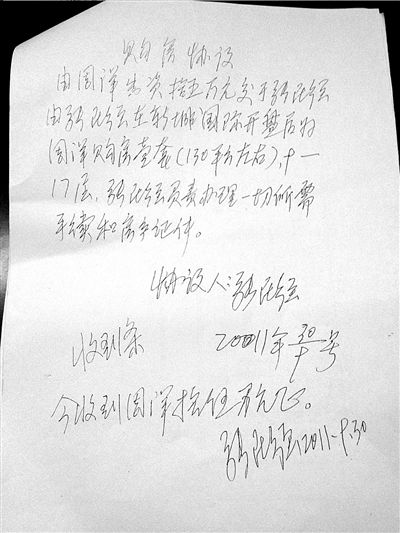 购房协议
由周洋出资拾五万元交于张
由张在新 国际开盘后为
周洋购房壹套(130平左右),十一
17层,张负责办理一切所需
手续和房产证件。
协议人:张
收到条 20011年30/十号
今收到周洋拾伍万元正。
张 2011-9.30